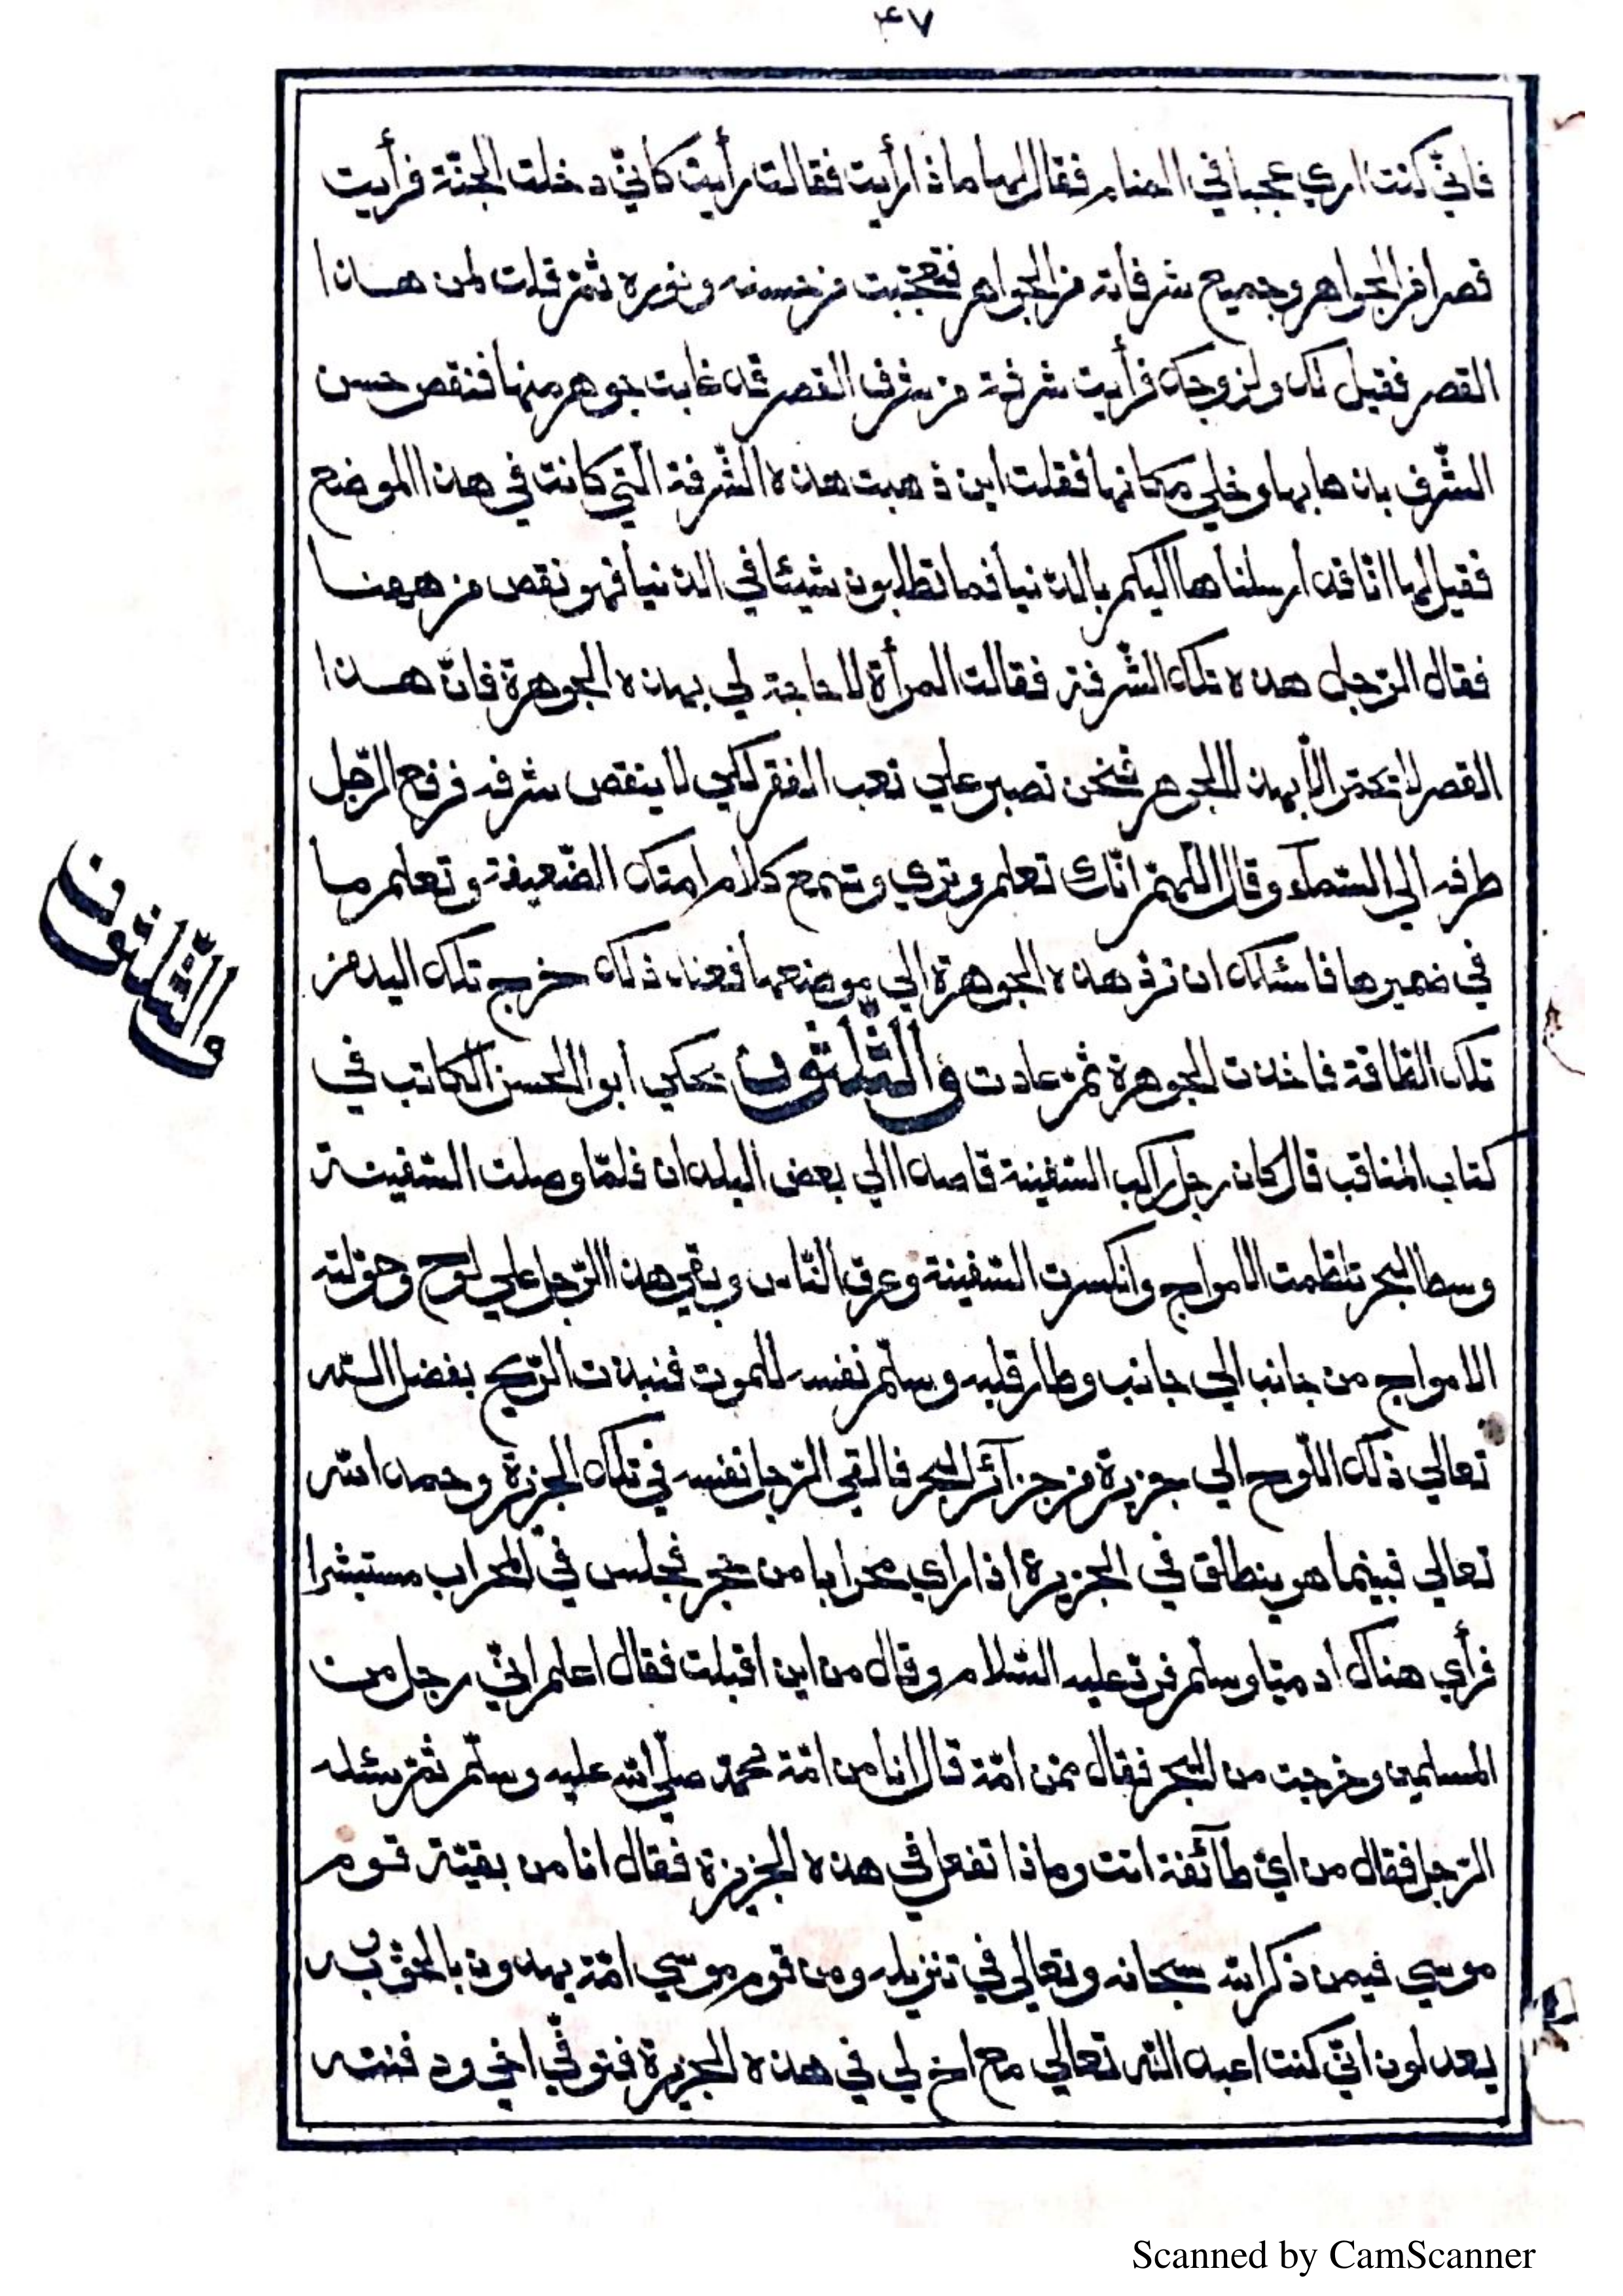 ٤٧
فانّي كنت اري عجبا في المنام فقال لها ما ذا رأيت فقالت رأيت كانّي دخلت الجنّة فرأيت
قصرا من الجواهر وجميع شرفاته من الجواهر فتعجّبت من حسنه ونوره ثمّ قلت لمن هذا
القصر فقيل لك ولزوجك فرأيت شرفة من شرف القصر قد غابت جوهر منها فنقص حسن
الشّرف بذهابها وخلي مكانها فقلت اين ذهبت هذه الشّرفة الّتي كانت في هذا الموضع
فقيل لها انّا قد أرسلناها اليكم بالدّنيا فما تطلبون شيئا في الدّنيا فهو نقص من ههنا
فقال الرّجل هذه تلك الشّرفة فقالت المرأة لا حاجة لي بهذه الجوهرة فانّ هذا
القصر لا تحتمّ الاّ بهذا الجوهر فنحن نصبر علي تعب الفقر لكي لا ينقص شرفه فرفع الرّجل
طرفه الي السّمآء وقال اللّهمّ انّك تعلم وتري وتسمع كلام امتك الضّعيفة وتعلم ما
في ضميرها فاسئلك ان تردّ هذه الجوهرة الي موضعها فعند ذلك خرج تلك اليد من
تلك الطّاقة فاخذت الجوهرة ثمّ عادت والثّلثون يحكي أبو الحسن الكاتب في
والثّلثون
كتاب المناقب قال كان رجل راكب السّفينة قاصدا الي بعض البلدان فلمّا وصلت السّفينة
وسط البحر تلطّمت الامواج وانكسرت السّفينة وغرق النّاس وبقي هذا الرّجل علي لوح وحوّلته
الامواج من جانب الي جانب وطار قلبه وسلّم نفسه للموت فنبذت الرّيح بفضل اللّه
تعالي ذلك اللّوح الي جزيرة من جزآئر البحر فالقي الرّجل نفسه في تلك الجزيرة وحمد اللّه
تعالي فبينما هو ينطلق في الجزيرة اذا راي محرابا من حجر فجلس في المحراب مستبشرا
فرأي هناك ادميّا وسلّم فردّ عليه السّلام وقال من اين اقبلت فقال اعلم انّي رجل من
المسلمين وخرجت من البحر فقال ممّن امّة قال انا من امّة محمّد صلّي اللّه عليه وسلّم ثمّ سئله
الرّجل فقال من ايّ طآئفة انت وماذا تفعل في هذه الجزيرة فقال انا من بقيّة قوم
موسي فيمن ذكر اللّه سبحانه وتعالي في تنزيله ومن قوم موسي امّة يهدون بالحقّ وبه
يعدلون انّي كنت اعبد اللّه تعالي مع اخ لي في هذه الجزيرة فتوفّي اخي ودفنته
Scanned by CamScanner